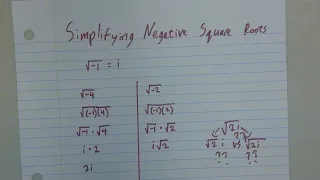 Simplifying Negative Square Roots
√-1 = i
√-4
√(-1)(4)
√-1 · √4
i · 2
2i
√-2
√(-1)(2)
√-1 · √2
i√2
√2i
??
√2 i vs √2i
?? ??
?? ??